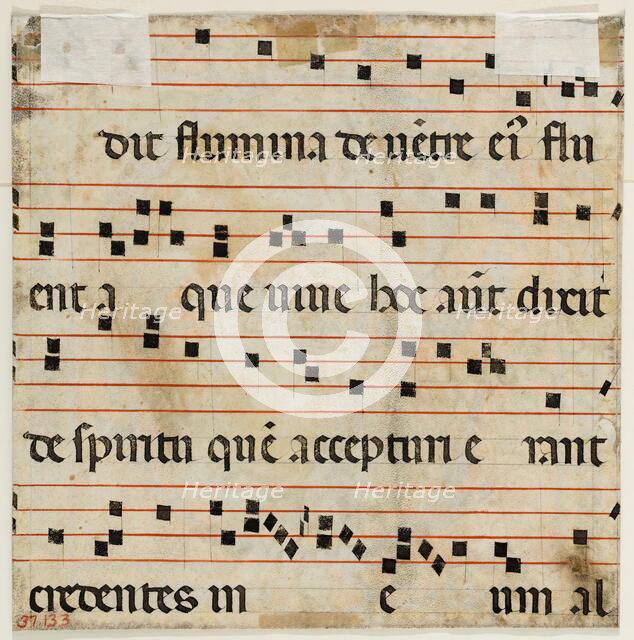 dit flumina de vẽtre eiꝰ flu
ent a que vive hoc aũt dixit
de spiritu quẽ accepturi e rant
credentes in e um al
37.133
Heritage
Heritage
Heritage
Heritage
Heritage
Heritage
©